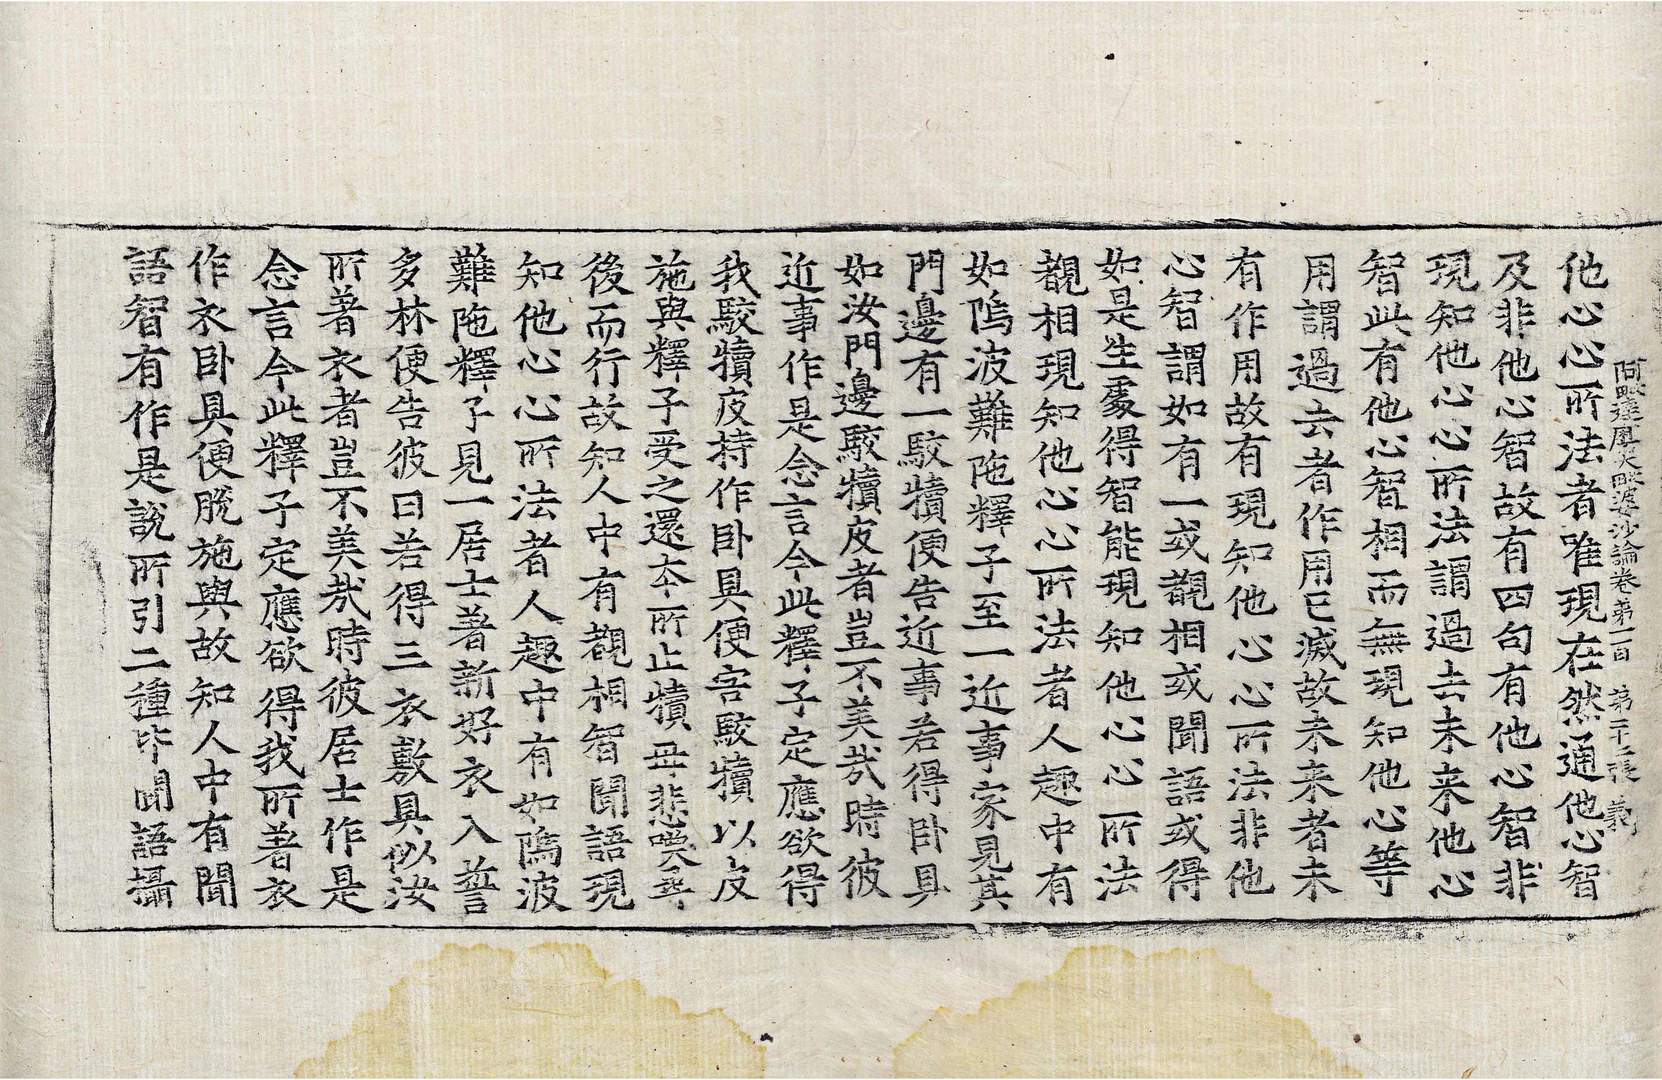 阿毗達磨大毗婆沙論卷第一百 第二十三張 義
他心心所法者唯現在然通他心智
及非他心智故有四句有他心智非
現知他心心所法謂過去未来他心
智此有他心智相而無現知他心等
用謂過去者作用已滅故未来者未
有作用故有現知他心心所法非他
心智謂如有一或覩相或聞語或得
如是生處得智能現知他心心所法
覩相現知他心心所法者人趣中有
如鄔波難陁釋子至一近事家見其
門邊有一駮犢便告近事若得卧具
如汝門邊駮犢皮者豈不美㢤時彼
近事作是念言今此釋子定應欲得
我駮犢皮持作卧具便害駮犢以皮
施與釋子受之還夲所止犢母悲㘁尋
後而行故知人中有覩相智聞語現
知他心心所法者人趣中有如鄔波
難陁釋子見一居士著新好衣入誓
多林便告彼曰若得三衣敷具似汝
所著衣者豈不美㢤時彼居士作是
念言今此釋子定應欲得我所著衣
作衣卧具便脫施與故知人中有聞
語智有作是說所引二種皆聞語攝